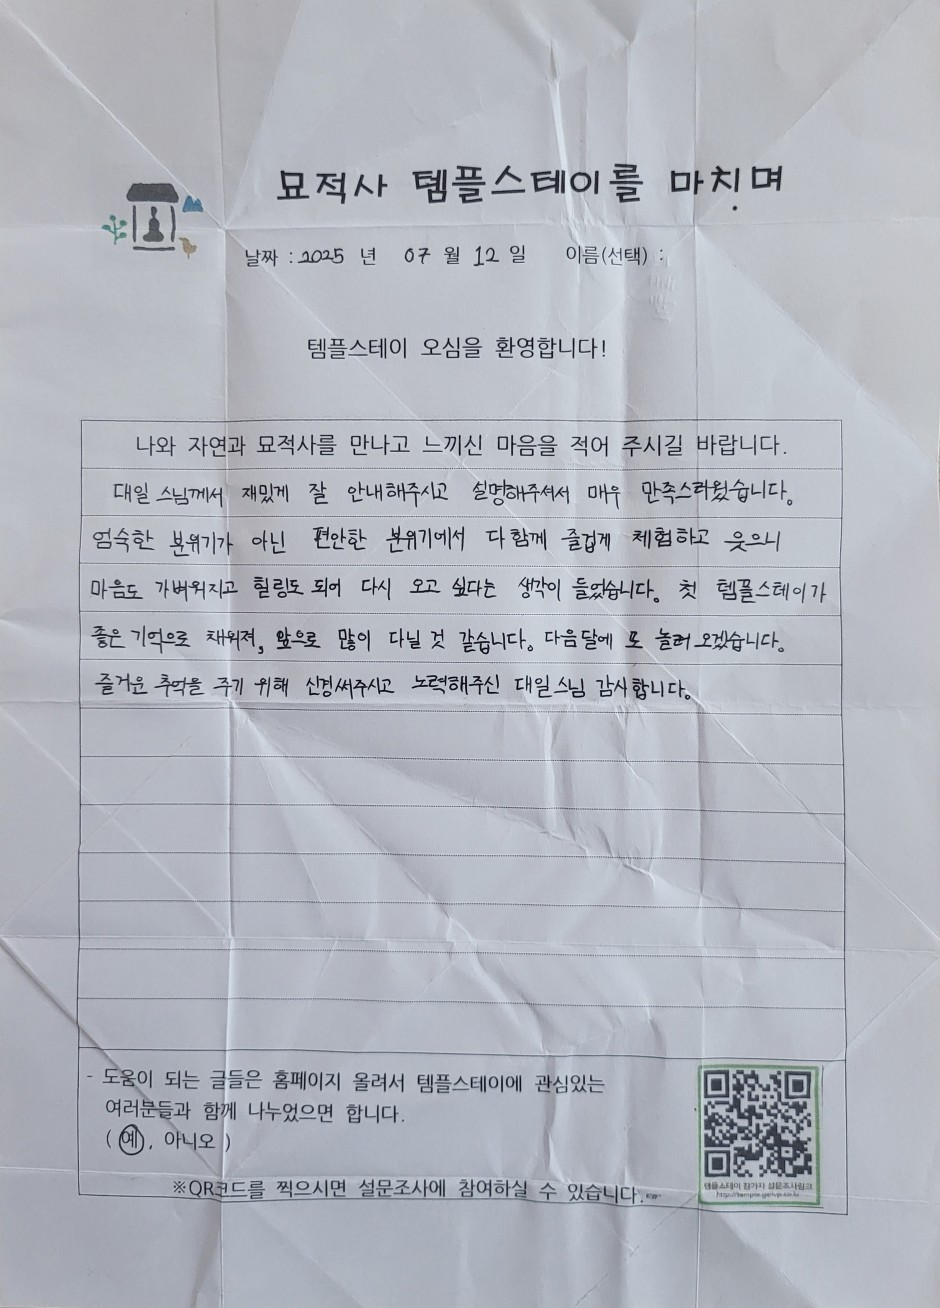 묘적사 템플스테이를 마치며
날짜 : 2025 년 07 월 12 일 이름(선택) :
템플스테이 오심을 환영합니다!
나와 자연과 묘적사를 만나고 느끼신 마음을 적어 주시길 바랍니다.
대일 스님께서 재밌게 잘 안내해주시고 설명해주셔서 매우 만족스러웠습니다.
엄숙한 분위기가 아닌 편안한 분위기에서 다함께 즐겁게 체험하고 웃으니
마음도 가벼워지고 힐링도 되어 다시 오고 싶다는 생각이 들었습니다. 첫 템플스테이가
좋은 기억으로 채워져, 앞으로 많이 다닐 것 같습니다. 다음달에 또 놀러 오겠습니다.
즐거운 추억을 주기 위해 신경써주시고 노력해주신 대일스님 감사합니다.
- 도움이 되는 글들은 홈페이지 올려서 템플스테이에 관심있는
여러분들과 함께 나누었으면 합니다.
( 예, 아니오 )
템플스테이 참가자 설문조사링크
※QR코드를 찍으시면 설문조사에 참여하실 수 있습니다.☞